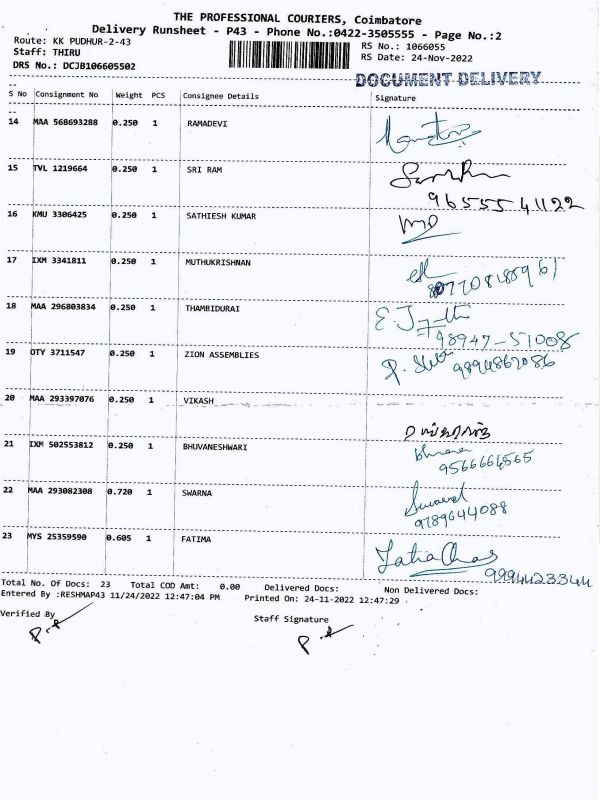 THE PROFESSIONAL COURIERS, Coimbatore
Delivery Runsheet - P43 - Phone No.:0422-3505555 - Page No.:2
Route: KK PUDHUR-2-43 RS No.: 1066055
Staff: THIRU RS Date: 24-Nov-2022
DRS No.: DCJB106605502
DOCUMENT DELIVERY
S No Consignment No Weight PCS Consignee Details Signature
14 MAA 568693288 0.250 1 RAMADEVI
15 TVL 1219664 0.250 1 SRI RAM
9655541122
16 KMU 3306425 0.250 1 SATHIESH KUMAR
17 IXM 3341811 0.250 1 MUTHUKRISHNAN
18 MAA 296803834 0.250 1 THAMBIDURAI
98947-51008
19 OTY 3711547 0.250 1 ZION ASSEMBLIES
9894867086
20 MAA 293397076 0.250 1 VIKASH
21 IXM 502553812 0.250 1 BHUVANESHWARI
9566664565
22 MAA 293082308 0.720 1 SWARNA
9789644088
23 MYS 25359590 0.605 1 FATIMA
9994423344
Total No. Of Docs: 23 Total COD Amt: 0.00 Delivered Docs: Non Delivered Docs:
Entered By :RESHMAP43 11/24/2022 12:47:04 PM Printed On: 24-11-2022 12:47:29
Verified By Staff Signature